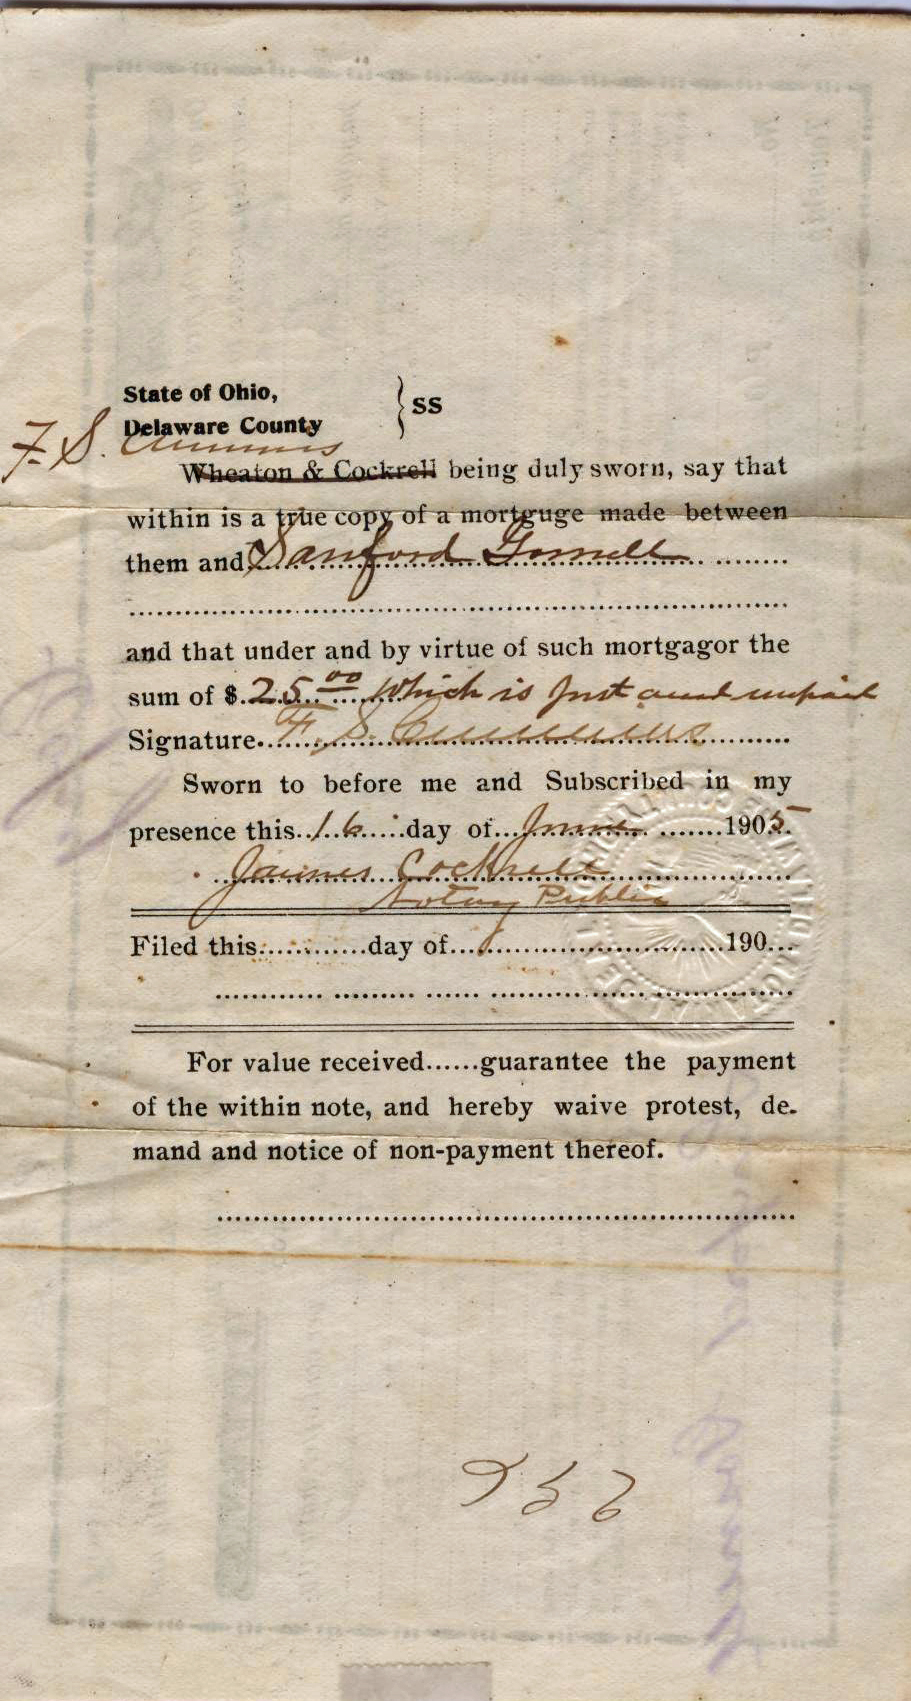 State of Ohio,
Delaware County } SS
F. S. Cummins
Wheaton & Cockrell being duly sworn, say that
within is a true copy of a mortguge made between
them and Sanford Gornell
and that under and by virtue of such mortgagor the
sum of $ 25 00 Which is Just and unpaid
Signature F. S. Cummins
Sworn to before me and Subscribed in my
presence this 16 day of June 1905.
James Cockrell
Notary Public
Filed this............day of..............................190...
For value received......guarantee the payment
of the within note, and hereby waive protest, de-
mand and notice of non-payment thereof.